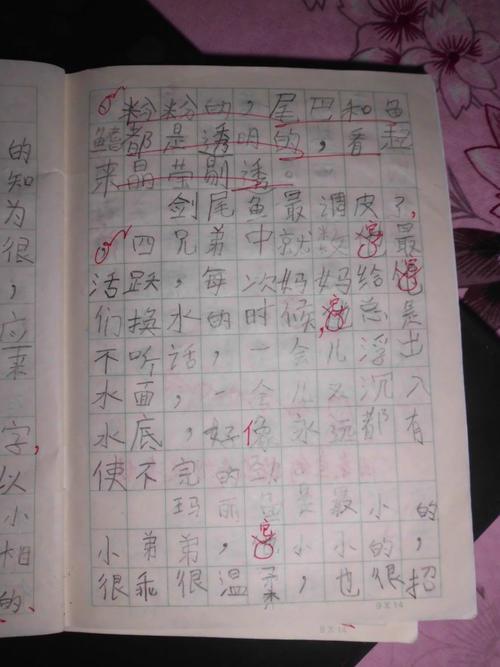 的
知
为
很
，
应
来
字，
以
小
相
的
粉粉的，尾巴和鱼
鳍都是透明的，看起
来晶莹剔透。
剑尾鱼最调皮了，
四兄弟中就数它最
活跃，每次妈妈给它
们换水的时候，它总是
不听话，一会儿浮出
水面，一会儿又沉入
水底，好像永远都有
使不完的劲
玛丽是最小的
小弟弟，它小小的，
很乖很温柔，也很招
9×14
9×14